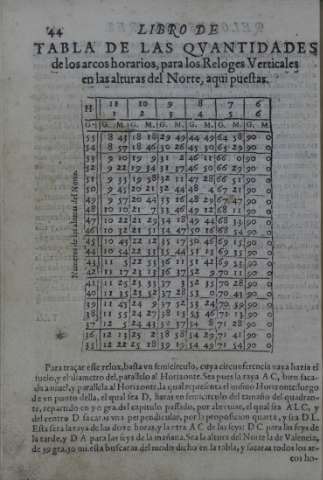 44 LIBRO DE
TABLA DE LAS QVANTIDADES
de los arcos horarios, para los Reloges Verticales
en las alturas del Norte, aqui puestas.
H 11 10 9 8 7 6
1 2 3 4 5 6
G. G. M. G. M. G. M. G. M. G. M. G. M.
Numeros de las alturas del Norte.
55 8 43 18 18 29 49 44 49 64 58 90 0
54 8 57 18 46 30 26 45 30 65 29 90 0
53 9 10 19 9 31 2 46 11 66 0 90 0
52 9 22 19 34 31 37 46 50 66 29 90 0
51 9 33 19 58 32 11 47 28 66 51 90 0
50 9 45 20 21 32 44 48 4 67 21 90 0
49 9 57 20 44 33 16 48 29 67 47 90 0
48 10 10 21 7 33 46 49 12 68 11 90 0
47 10 22 21 29 34 18 49 44 68 33 90 0
46 10 32 21 51 34 47 50 16 68 54 90 0
45 10 43 22 12 35 17 50 46 69 15 90 0
44 10 54 22 33 35 44 51 15 69 35 90 0
43 11 5 22 53 36 11 51 42 69 53 90 0
42 11 17 23 13 36 37 52 9 70 11 90 0
41 11 25 23 33 37 3 52 35 70 28 90 0
40 11 35 23 52 37 28 53 0 70 43 90 0
39 11 45 24 9 37 52 53 24 70 59 90 0
38 11 55 24 27 38 15 53 46 71 13 90 0
37 12 5 24 43 38 37 54 8 71 28 90 0
36 12 13 25 2 38 58 54 29 71 41 90 0
35 12 22 25 18 39 19 54 49 71 54 90 0
Para traçar este relox, basta vn semicirculo, cuya circunferencia vaya hazia el
suelo, y el diametro del, paralelo al Horizonte. Sea pues la raya A C, bien saca-
da a niuel, y paralela al Horizonte, la qual representa el mismo Horizonte: luego
de vn punto della, el qual sea D, haras vn semicirculo del tamaño del quadran-
te, repartido en 90 gra. del capitulo passado, por abreuiar, el qual sea A L C, y
del centro D sacaras vna perpendicular, por la proposicion quarta, y sea D L.
Esta sera la raya de las doze horas, y la otra A C de las seys: D C para las seys de
la tarde, y D A para las seys de la mañana. Sea la altura del Norte la de Valencia,
de 39 gra. 30 mi. esta buscaras del modo dicho en la tabla, y sacaras todos los ar-
cos ho-